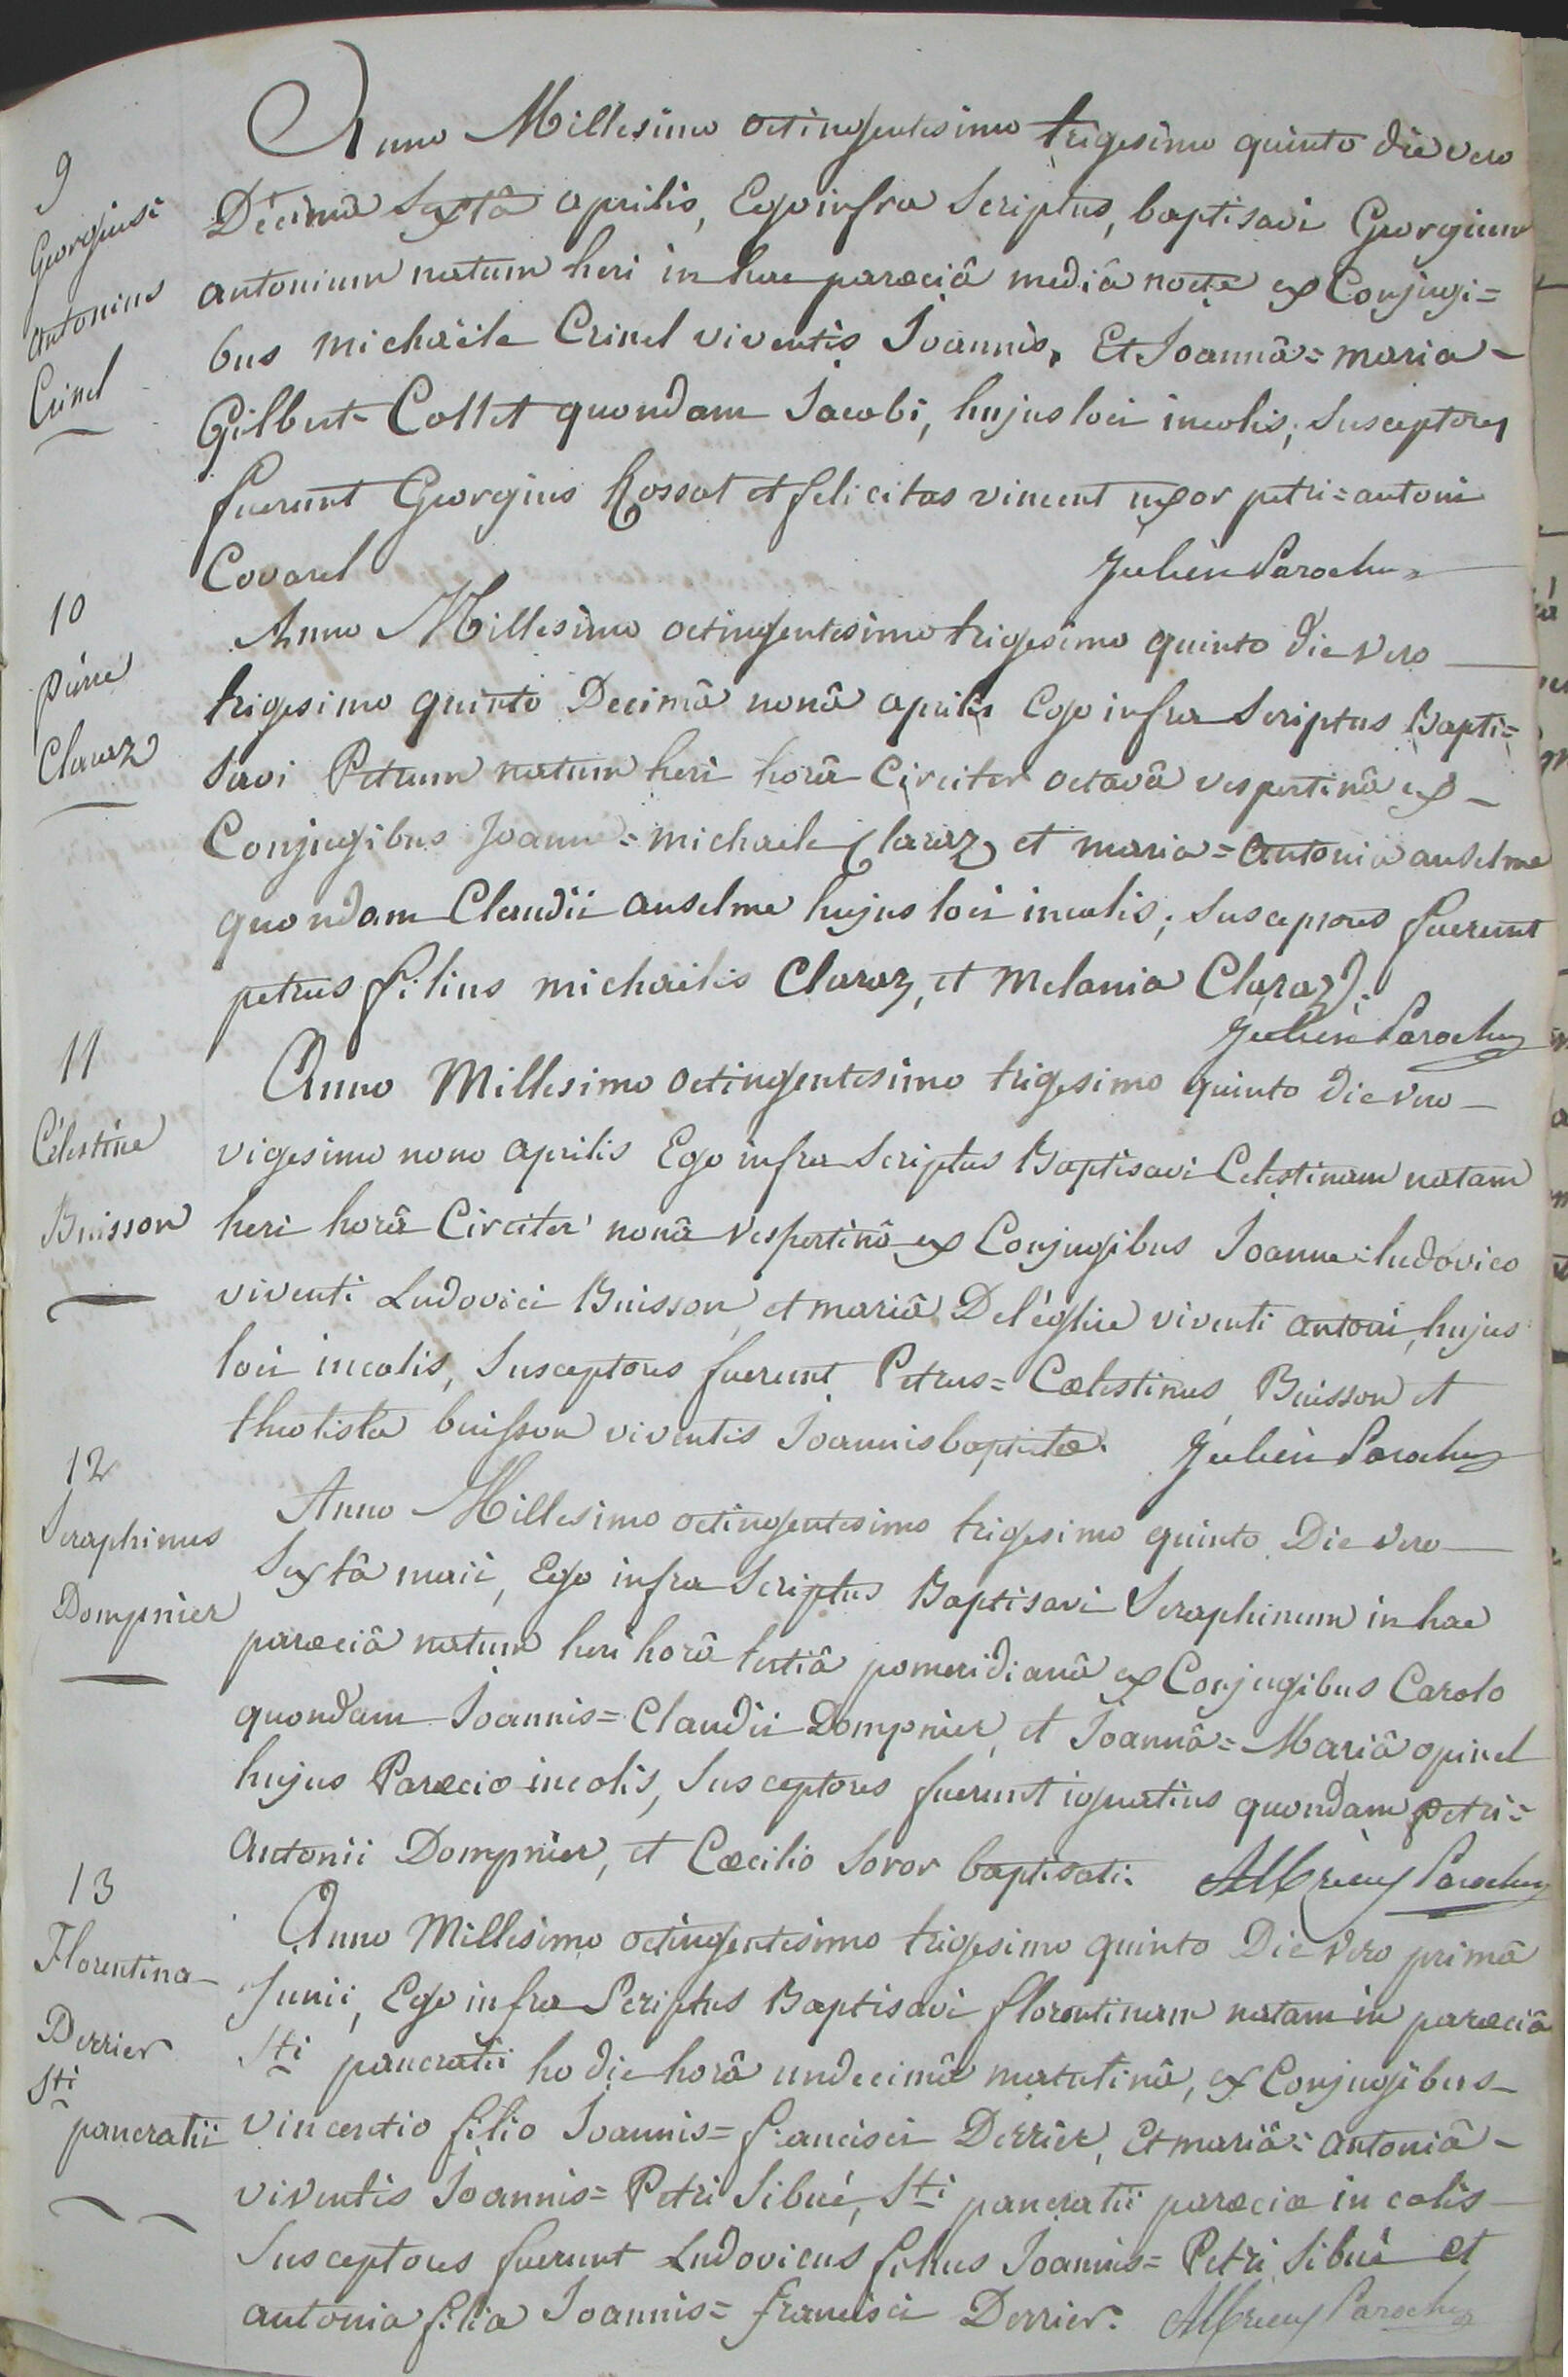 9
Georgiusi
antonius
Crinel
Anno Millesimo octingentesimo trigesimo quinto die vero
Décimâ Sextâ aprilis, Ego infra Scriptus, baptisavi Georgium
antonium natum heri in hac parœciâ mediâ nocte ex Conjugi=
bus michaële Crinel viventis Joannis, Et Joannâ=maria-
Gilbert-Collet quondam Jacobi, hujus loci incolis; Susceptores
fuerunt Georgius Rossat et felicitas vincent uxor petri=antoni
Covarel Julien Parochus
10
pierre
Claraz
Anno Millesimo octingentesimo trigesimo quinto die vero
trigesimo quinto Decimâ nonâ aprilis Ego infra Scriptus Bapti=
savi Petrum natum heri horâ Circiter octavâ vespertinâ ex-
Conjugibus Joanne=michaele Claraz et maria=antonia anselme
quondam Claudii anselme hujus loci incolis; Susceptores fuerunt
petrus filius michaëlis Claraz, et Melania Claraz.
Julien Parochus
11
Célestine
Buisson
Anno Millesimo octingentesimo trigesimo quinto Die vero-
vigesimo nono aprilis Ego infra Scriptus Baptisavi Celestinam natam
heri horâ Circiter nonâ vespertinâ ex Conjugibus Joanne=ludovico
viventi Ludovici Buisson, et mariâ Del'église viventi antoni, hujus
loci incolis, Susceptores fuerunt Petrus=Cœlestinus Buisson et
theotista buisson viventis Joannis baptistæ. Julien Parochus
12
Seraphinus
Dompnier
Anno Millesimo octingentesimo trigesimo quinto Die vero
Sextâ maii, Ego infra Scriptus Baptisavi Seraphinum in hac
parœciâ natum heri horâ tertiâ pomeridianâ ex Conjugibus Carolo
quondam Joannis=Claudii Dompnier, et Joannâ=Mariâ opinel
hujus Parœciæ incolis, Susceptores fuerunt ignatius quondam petri=
antonii Dompnier, et Cœcilia Soror baptisati. Albrieux Parochus
13
Florentina
Derrier
Sti
pancratii
Anno Millesimo octingentesimo trigesimo quinto Die vero primâ
Junii, Ego infra Scriptus Baptisavi florentinam natam in parœciâ
Sti pancratii hodie horâ undecimâ matutinâ, ex Conjugibus
vincentio filio Joannis=francisci Derrier, Et mariâ=antoniâ-
viventis Joannis=Petri Sibué, Sti pancratii parœciæ incolis
Susceptores fuerunt Ludovicus filius Joannis=Petri Sibué et
antonia filia Joannis=francisci Derrier. Albrieux Parochus